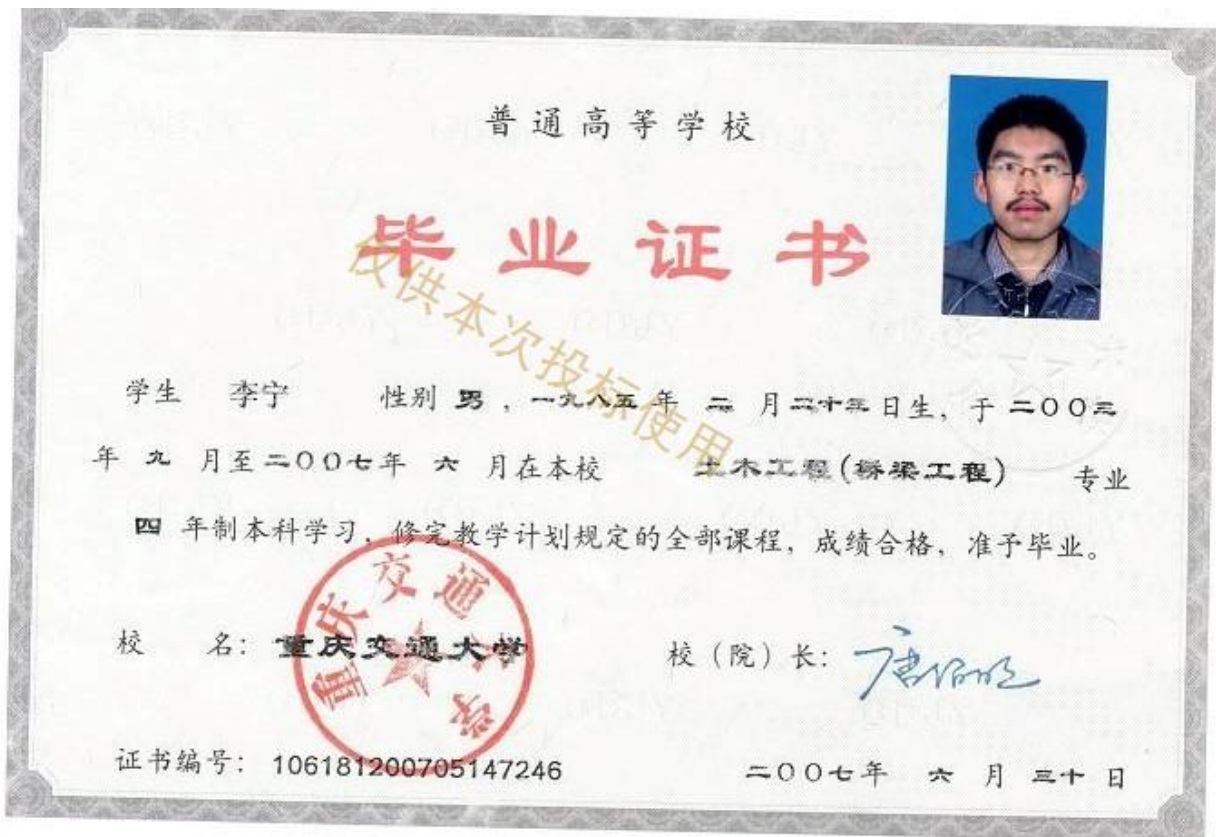 普通高等学校
毕业证书
仅供本次投标使用
学生 李宁 性别 男，一九八五年 二 月二十三日生，于二〇〇三
年 九 月至二〇〇七年 六 月在本校 土木工程(桥梁工程) 专业
四 年制本科学习，修完教学计划规定的全部课程，成绩合格，准予毕业。
重庆交通大学
校 名：重庆交通大学
校（院）长：
证书编号：106181200705147246
二〇〇七年 六 月 三十 日